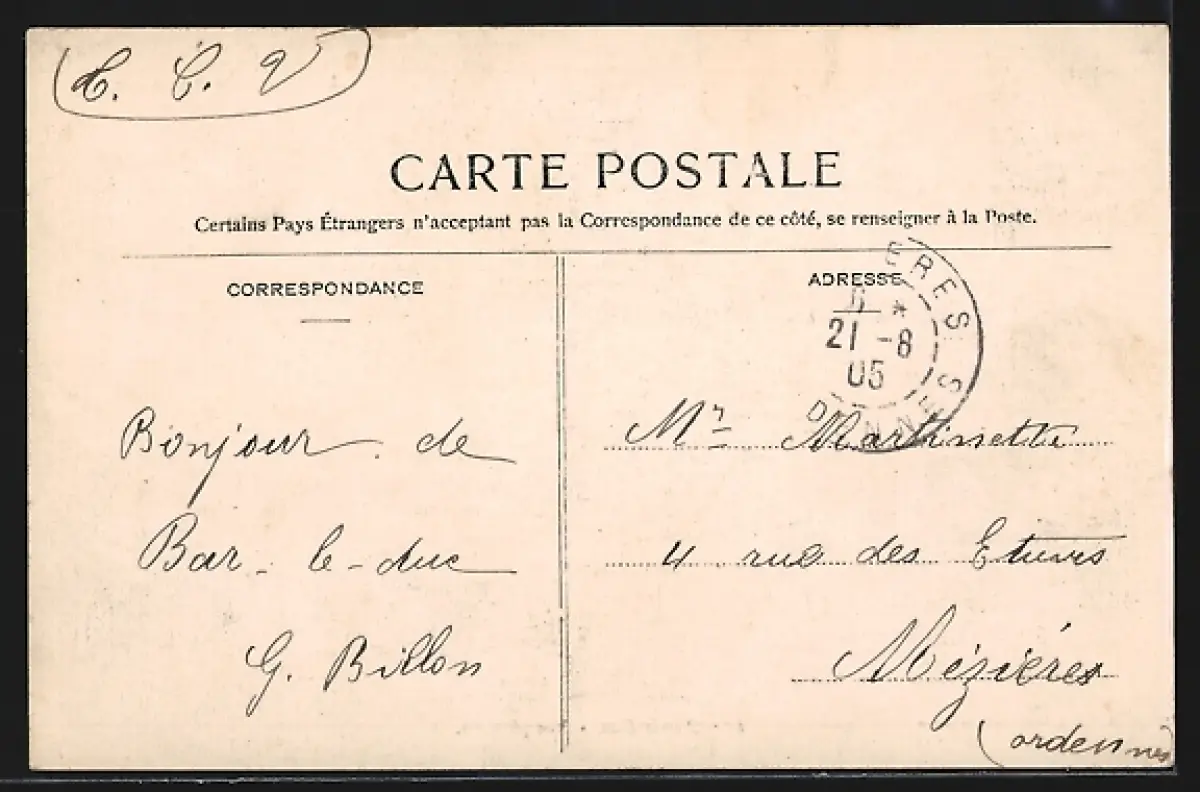 T. C. V
CARTE POSTALE
Certains Pays Étrangers n'acceptant pas la Correspondance de ce côté, se renseigner à la Poste.
CORRESPONDANCE
Bonjour de
Bar-le-duc
G. Billon
ADRESSE
ERES
*
21 -8
05
NNES
Mr Martinette
4 rue des Etuves
Mézières
(ardennes